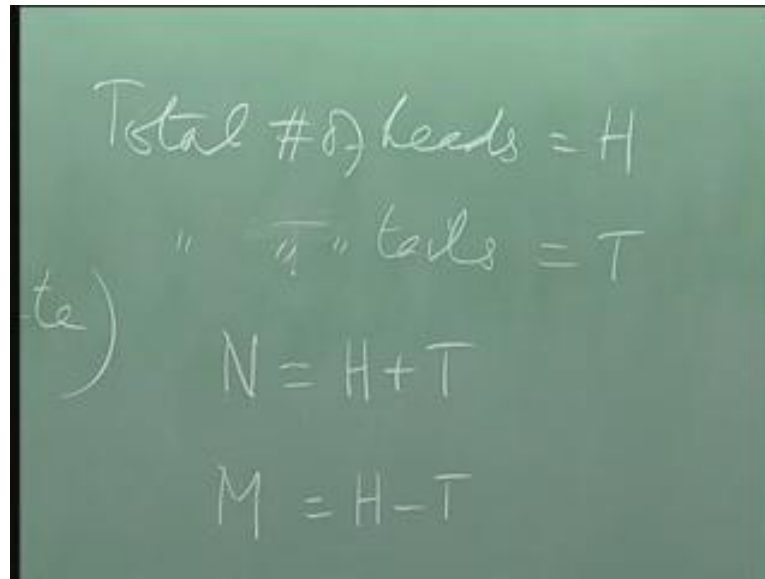 Total # of heads = H
" " " tails = T
te)
N = H + T
M = H - T